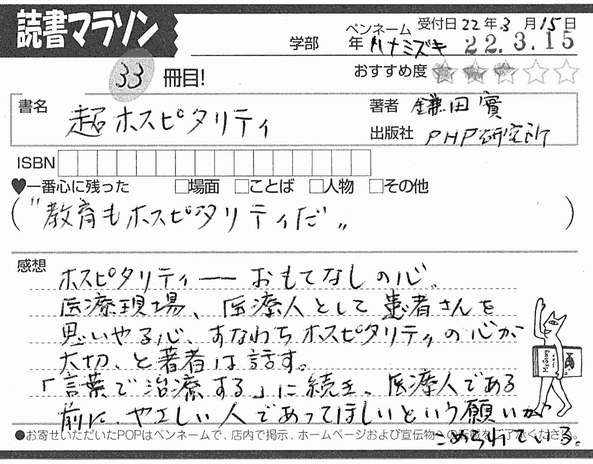 読書マラソン
学部 年 ペンネーム ハナミズキ 受付日 22年 3月 15日
22.3.15
33 冊目!
おすすめ度 ★★★☆☆
書名 超ホスピタリティ
著者 鎌田實
出版社 PHP研究所
ISBN
♥一番心に残った □場面 □ことば □人物 □その他
("教育もホスピタリティだ")
感想
ホスピタリティー おもてなしの心。
医療現場、医療人として患者さんを
思いやる心、すなわちホスピタリティの心が
大切、と著者は話す。
「言葉で治療する」に続き、医療人である
前に、やさしい人であってほしいという願いが
こめられている。
●お寄せいただいたPOPはペンネームで、店内で掲示、ホームページおよび宣伝物への
ください。